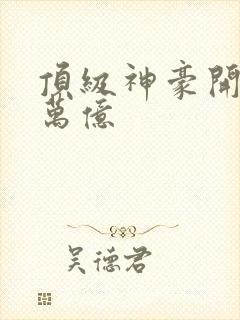 頂級神豪開
萬億
吴德君